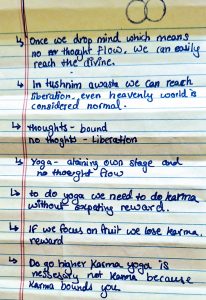 ↳ Once we drop mind which means
no thoaght flow, we can easily
reach the divine.
↳ In tushnim awaste we can reach
liberation, even heavenly world is
considered normal.
↳ thoughts - bound
no thoghts - liberation
↳ Yoga - ataining own stage and
no thought flow
↳ to do yoga we need to do karma
without expating reward.
↳ IF we focus on fruit we lose karma.
reward
↳ Do go higher Karma yoga is
nessersity not Karma because
Karma bounds you